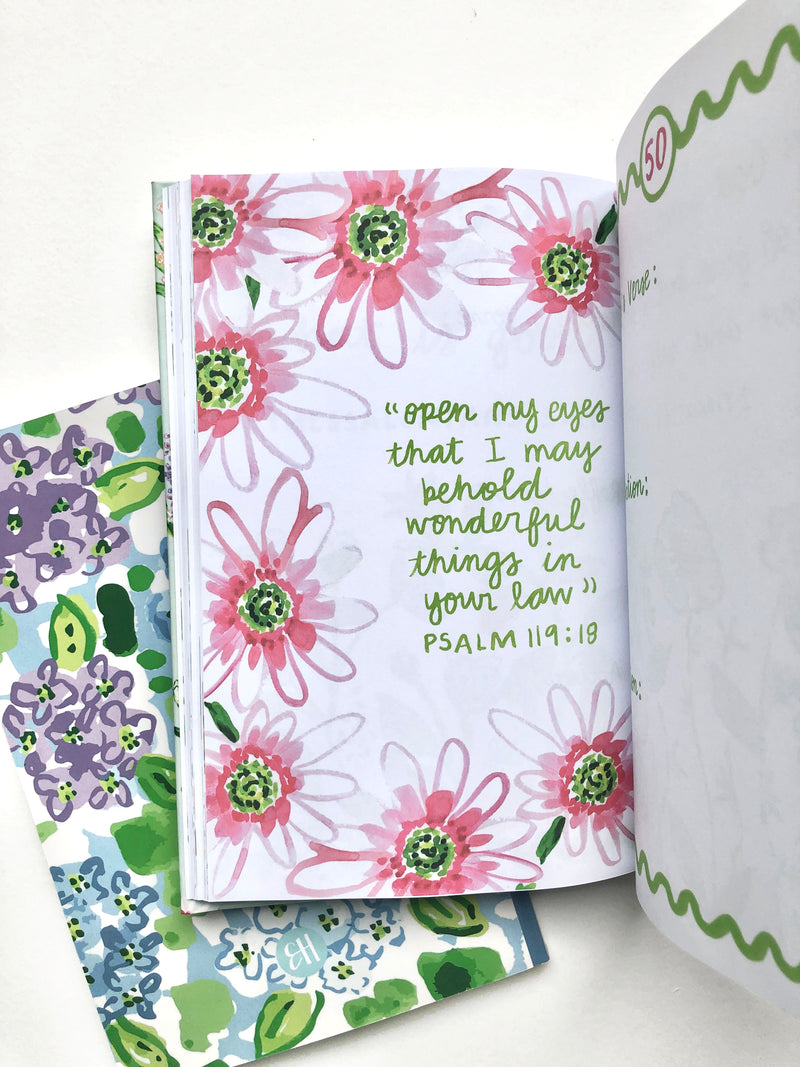 "open my eyes
that I may
behold
wonderful
things in
your law"
PSALM 119:18
50
verse:
EH